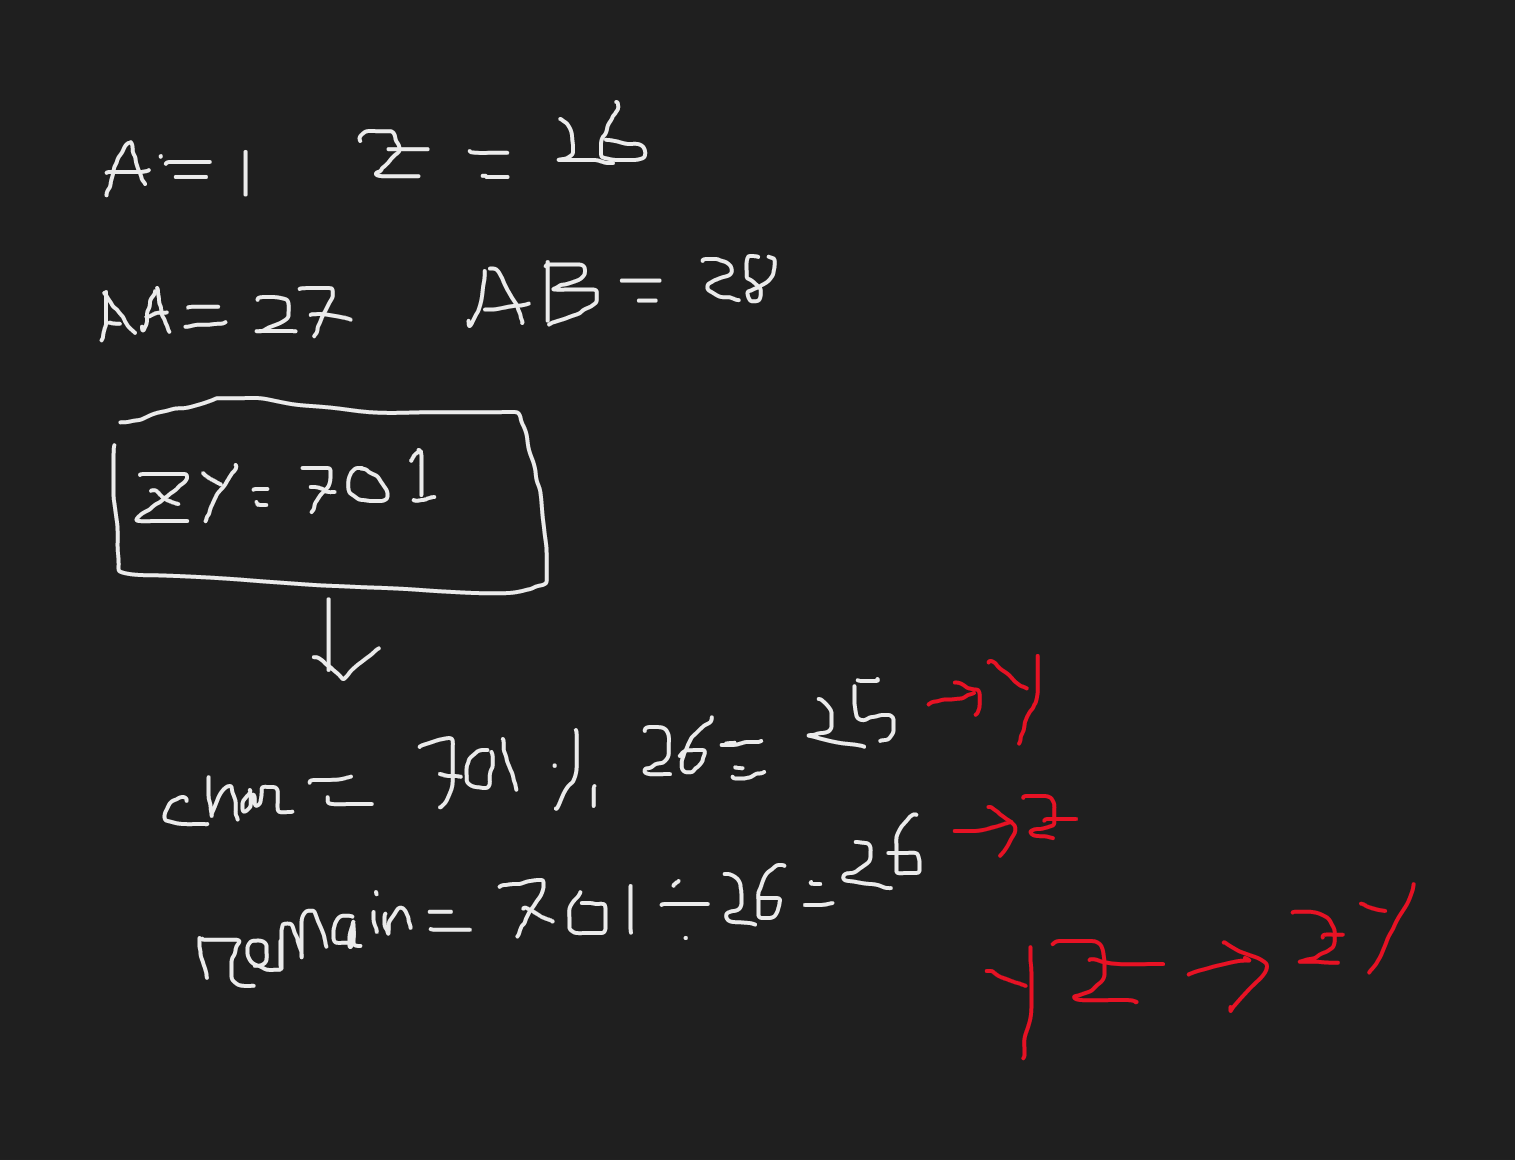 A = 1 Z = 26
AA = 27 AB = 28
ZY = 701
char = 701 % 26 = 25 → Y
remain = 701 ÷ 26 = 26 → Z
YZ → ZY